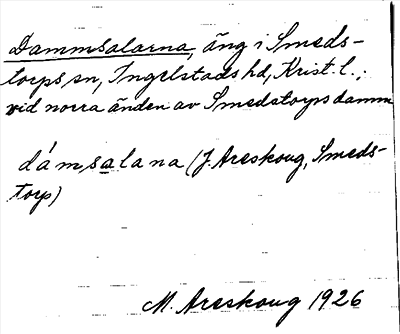 Dammsalarna, äng i Smeds-
torps sn, Ingelstads hd, Krist. l.;
vid norra änden av Smedstorps damm
dámsalana (J. Areskoug, Smeds-
torp)
M. Areskoug 1926